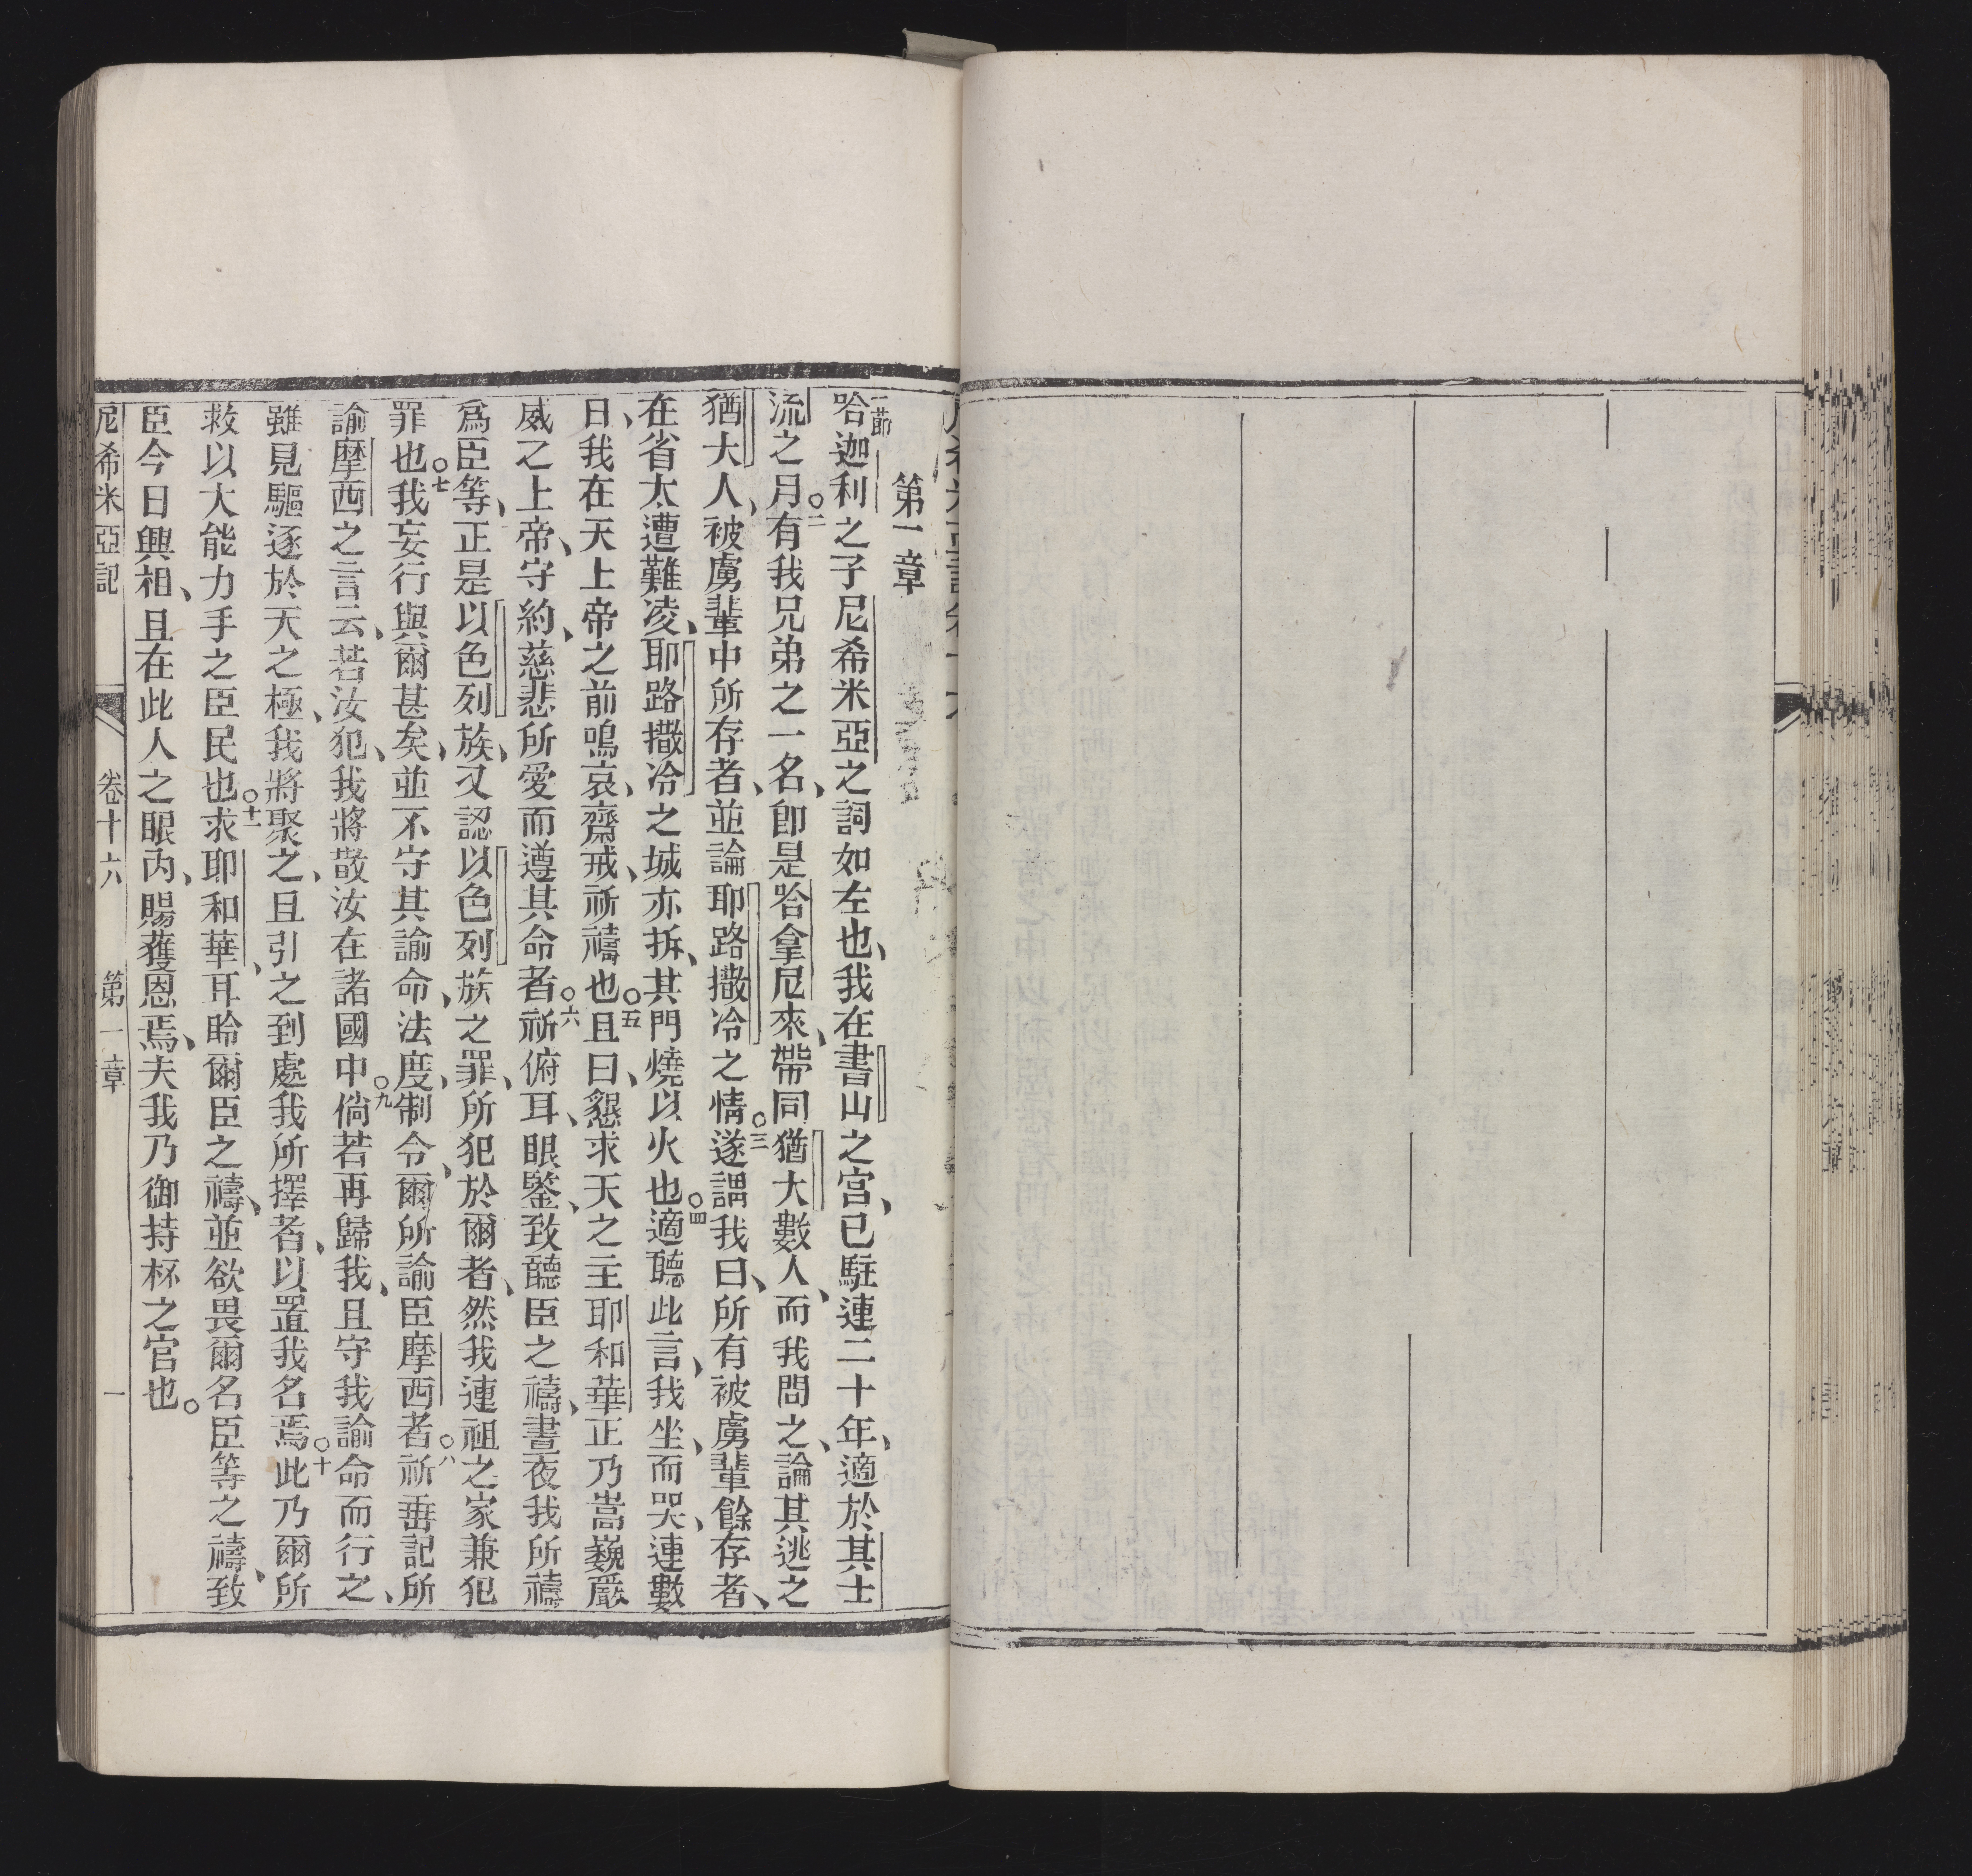 第一章
一節哈迦利之子尼希米亞之詞如左也、我在書山之宮、已駐連二十年、適於其士
流之月○二有我兄弟之一名、卽是哈拿尼來、帶同猶大數人、而我問之、論其逃之
猶大人、被虜輩中所存者、並論耶路撒冷之情○三遂謂我曰、所有被虜輩餘存者、
在省太遭難凌、耶路撒冷之城亦拆、其門燒以火也○四適聽此言、我坐、而哭、連數
日、我在天上帝之前鳴哀、齋戒、祈禱也○五且曰、懇求天之主耶和華正乃嵩巍嚴
威之上帝、守約、慈悲所愛而遵其命者○六祈俯耳、眼鑒、致聽臣之禱、晝夜我所禱
爲臣等、正是以色列族、又認以色列族之罪、所犯於爾者、然我連祖之家兼犯
罪也○七我妄行與爾甚矣、並不守其諭命、法度、制令、爾所諭臣摩西者○八祈垂記所
諭摩西之言云、若汝犯、我將散汝在諸國中○九倘若再歸我、且守我諭命而行之、
雖見驅逐於天之極、我將聚之、且引之到處我所擇者、以置我名焉○十此乃爾所
救以大能力手之臣民也○十一求耶和華、耳聆爾臣之禱、並欲畏爾名臣等之禱、致
臣今日興相、且在此人之眼內、賜獲恩焉、夫我乃御持杯之官也。
尼希米亞記 卷十六 第一章 一